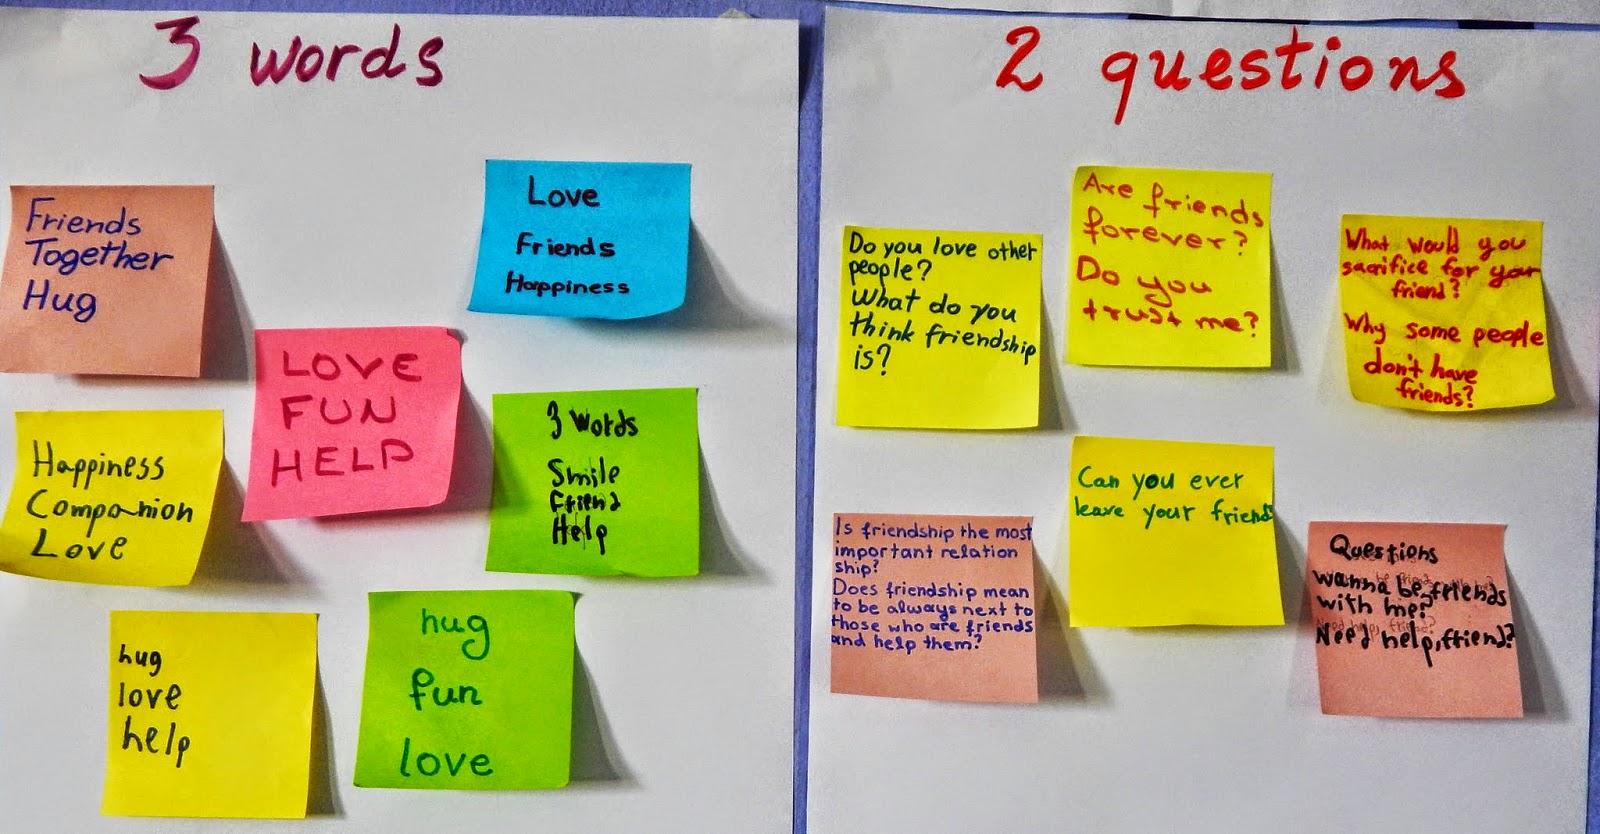 3 words
Friends
Together
Hug
Love
Friends
Happiness
LOVE
FUN
HELP
Happiness
Companion
Love
3 Words
Smile
Friend
Help
hug
love
help
hug
fun
love
2 questions
Do you love other
people?
What do you
think friendship
is?
Are friends
forever?
Do you
trust me?
What would you
sacrifice for your
friend?
Why some people
don't have
friends?
Is friendship the most
important relation
ship?
Does friendship mean
to be always next to
those who are friends
and help them?
Can you ever
leave your friend?
Questions
wanna be friends
with me?
Need help, friend?